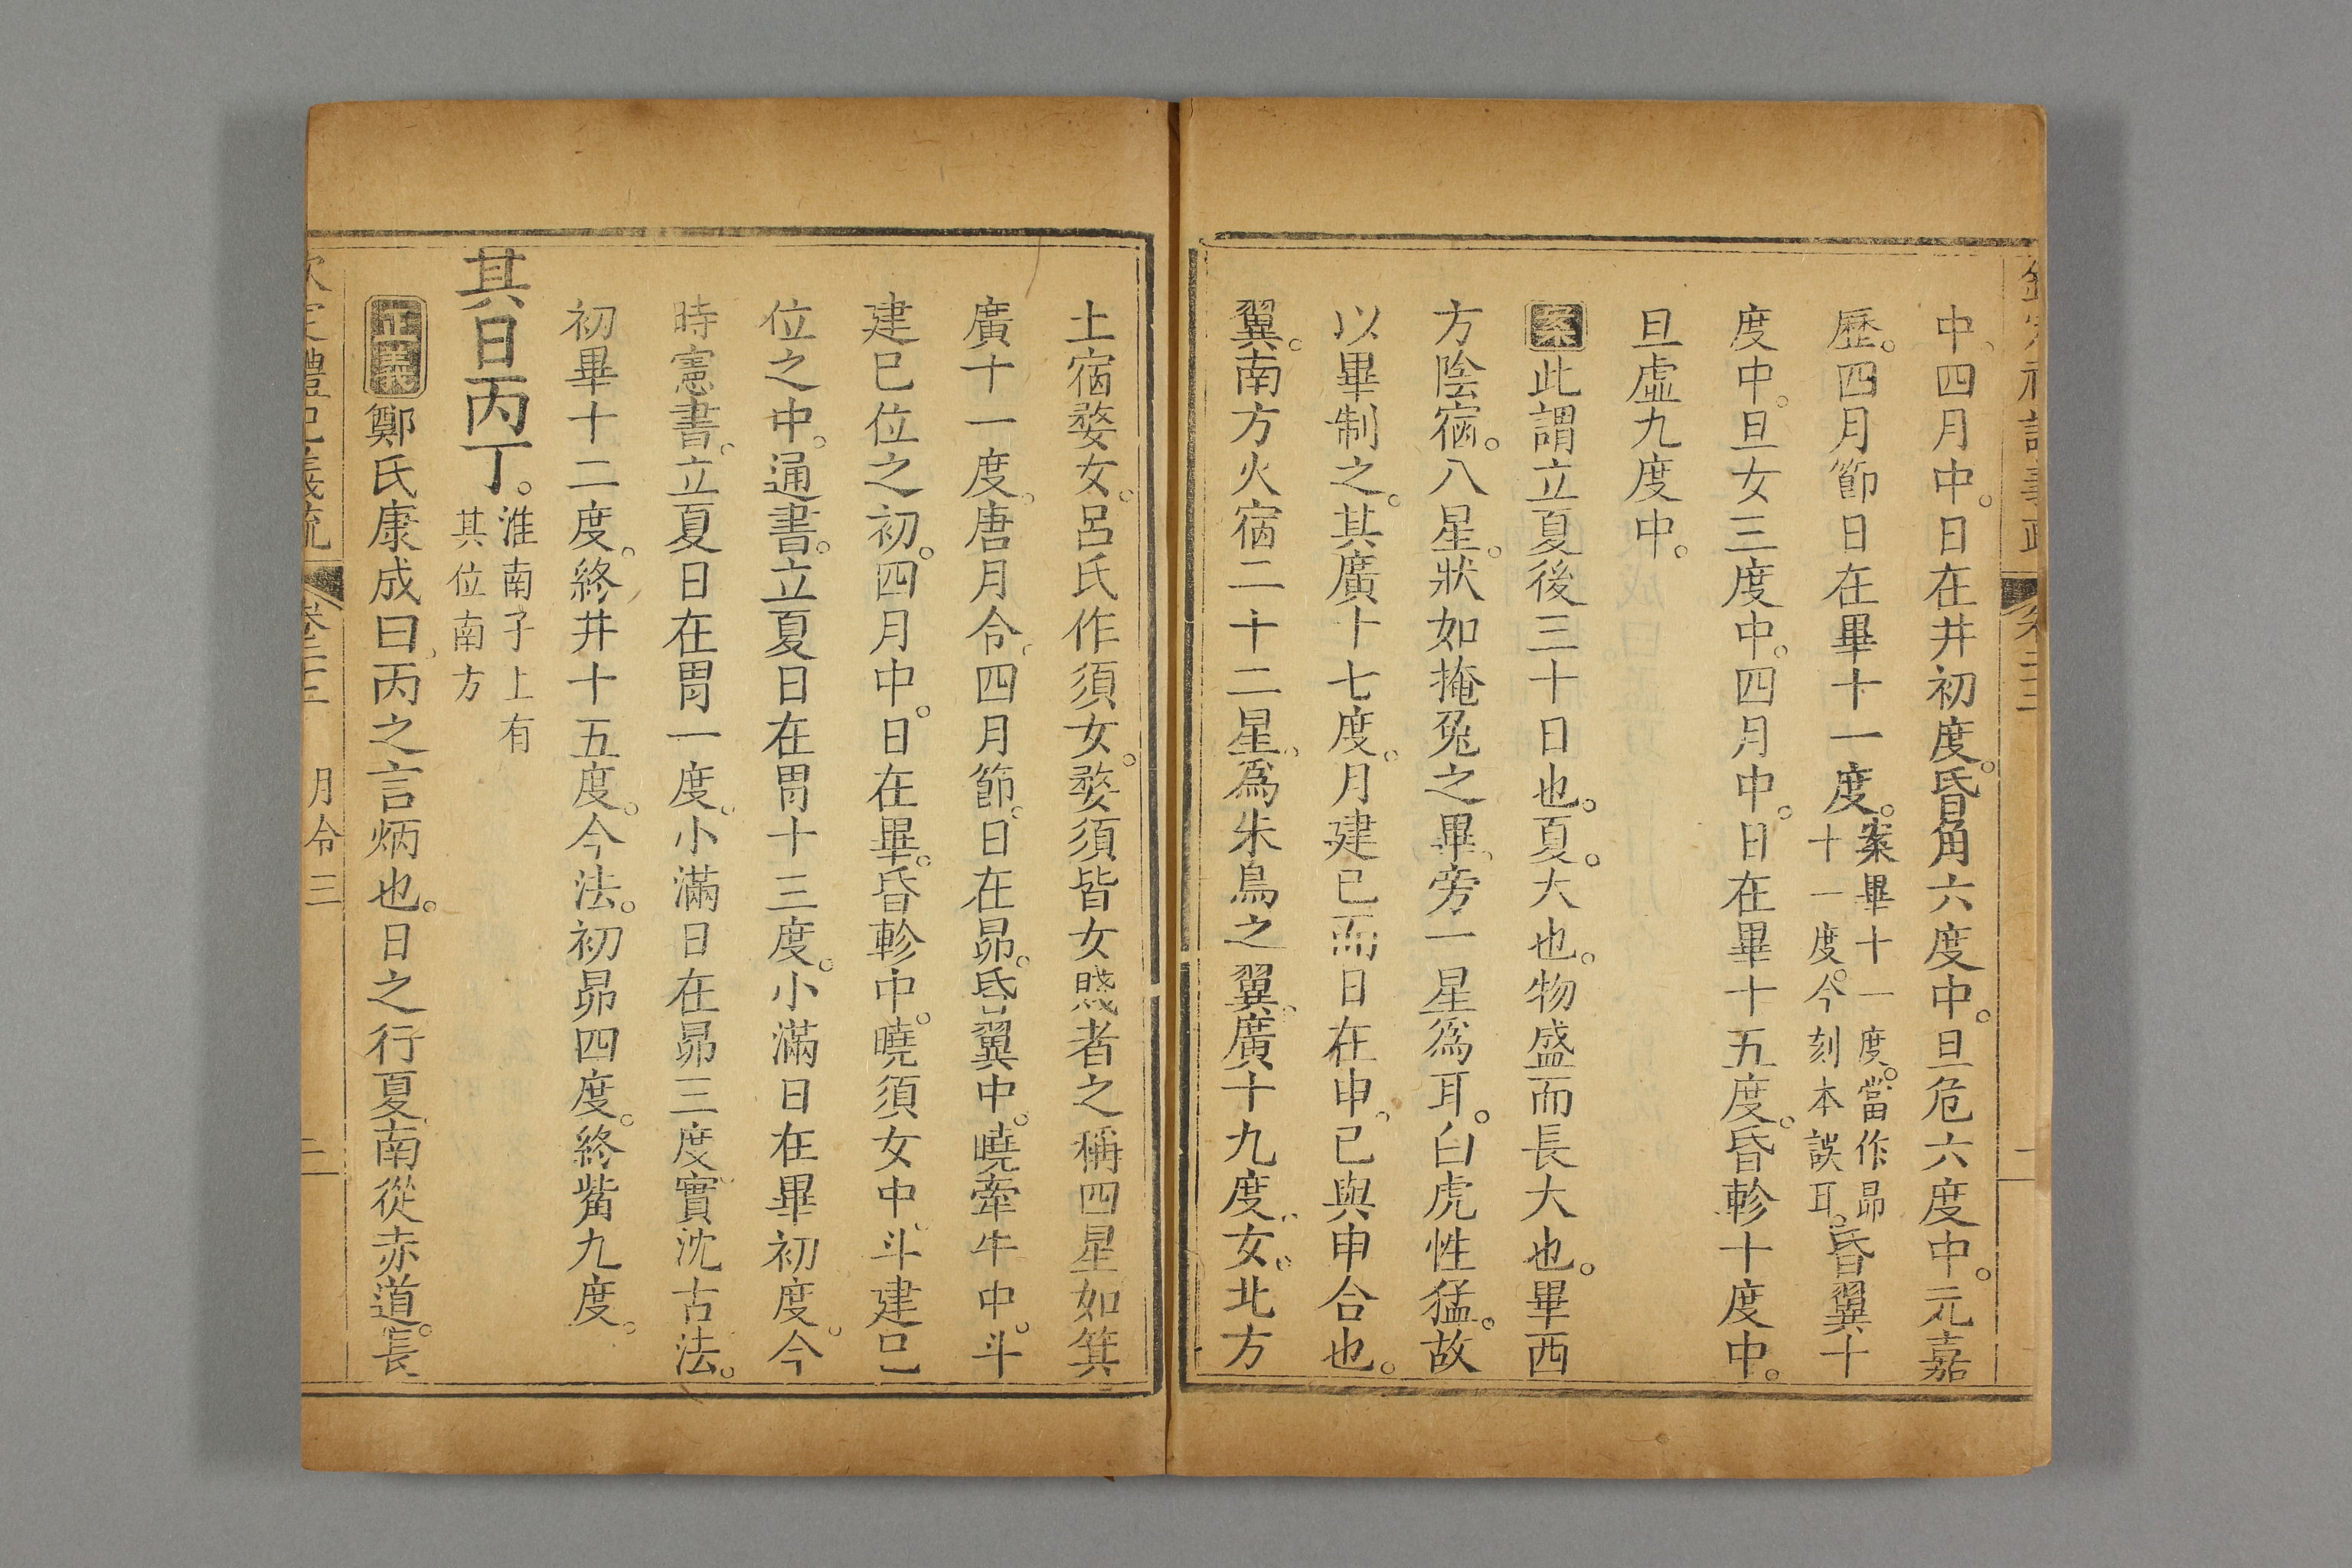 中四月中。日在井初度。昏角六度中。旦危六度中。元嘉
歷。四月節日在畢十一度。案畢十一度。當作昴十一度。今刻本誤耳。昏翼十
度中。旦女三度中。四月中。日在畢十五度。昏軫十度中。
旦虛九度中。
案此謂立夏後三十日也。夏。大也。物盛而長大也。畢西
方陰宿。八星。狀如掩兔之畢。旁一星為耳。白虎性猛。故
以畢制之。其廣十七度。月建巳而日在申。巳與申合也。
翼。南方火宿二十二星。為朱鳥之翼。廣十九度。女。北方
上宿婺女。呂氏作須女。婺須皆女賤者之稱四星如箕
廣十一度。唐月令。四月節。日在昴。昏翼中。曉牽牛中。斗
建巳位之初。四月中。日在畢。昏軫中。曉須女中。斗建巳
位之中。通書。立夏日在胃十三度。小滿日在畢初度。今
時憲書。立夏日在胃一度。小滿日在昴三度實沈古法。
初畢十二度。終井十五度。今法。初昴四度。終觜九度。
其日丙丁。淮南子上有其位南方
正義鄭氏康成曰。丙之言炳也。日之行夏。南從赤道。長
欽定禮記義疏 卷二十二 月令三 二